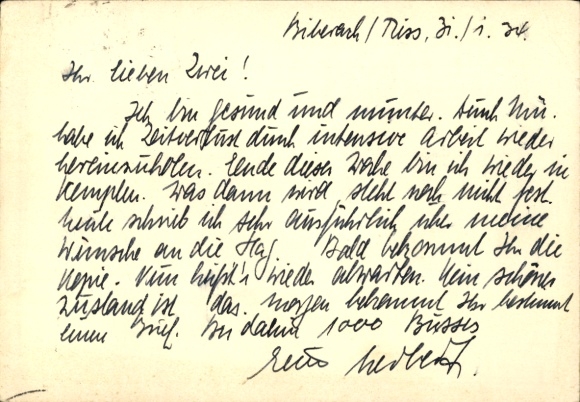 Biberach/Riss, 31./1. 34.
Ihr lieben Zwei!
Ich bin gesund und munter. Auch
habe ich Zeitverlust durch intensive Arbeit wieder
hereinzuholen. Ende dieser Woche bin ich wieder in
Kempten. Was dann wird steht noch nicht fest.
Heute schrieb ich sehr ausführlich über meine
Wünsche an die Bald bekommt Ihr die
Kopie. Nun heißt's wieder abwarten. Kein schöner
Zustand ist das. Morgen bekommt Ihr bestimmt
einen Brief. Bis dahin 1000 Busses
Euer Herbert.